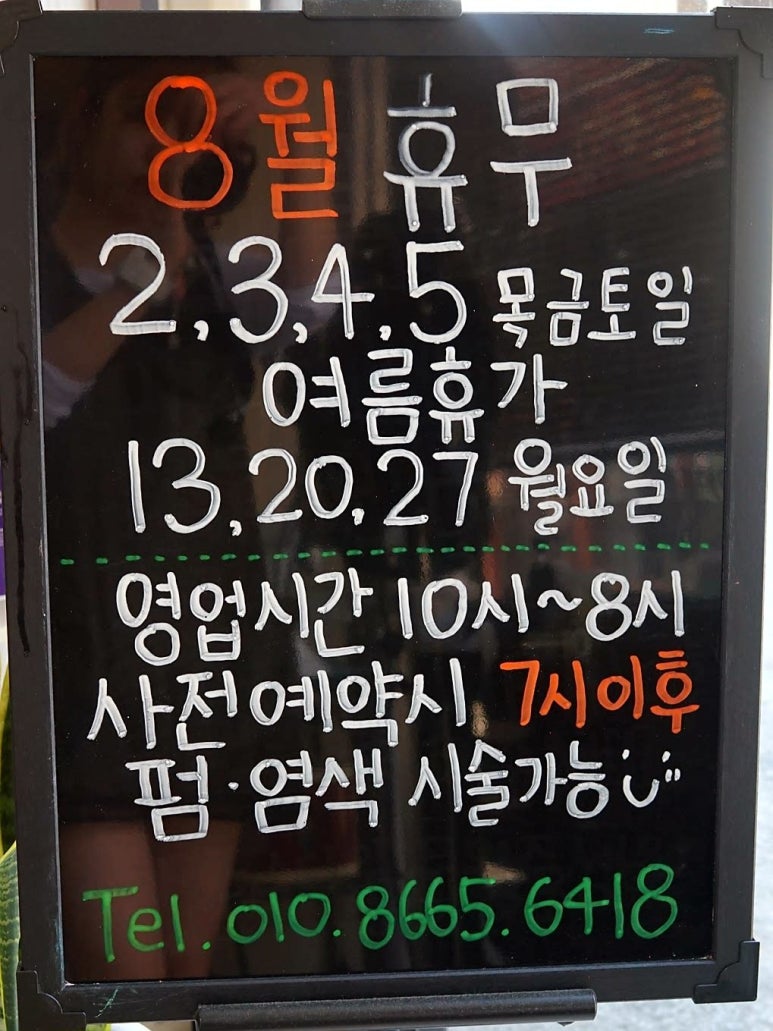 8월 휴무
2,3,4,5 목금토일
여름휴가
13,20,27 월요일
영업시간 10시~8시
사전예약시 7시이후
펌·염색 시술가능
Tel. 010. 8665. 6418